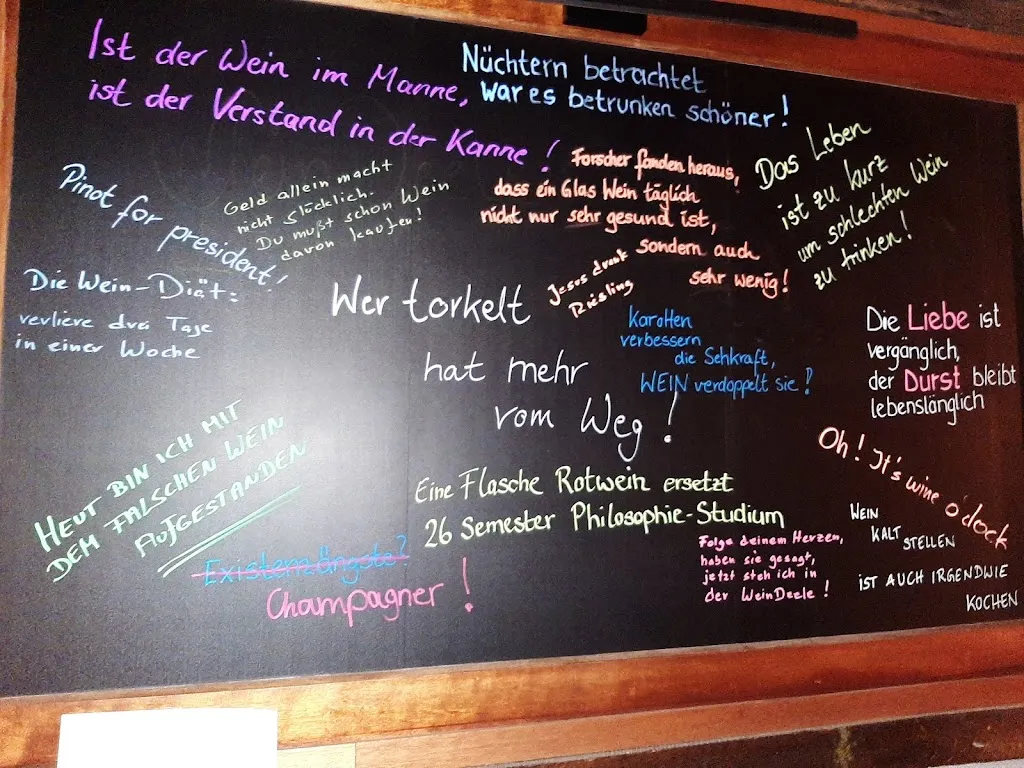 Ist der Wein im Manne,
ist der Verstand in der Kanne!
Nüchtern betrachtet
war es betrunken schöner!
Pinot for president!
Geld allein macht
nicht glücklich.
Du mußt schon Wein
davon kaufen!
Forscher fanden heraus,
dass ein Glas Wein täglich
nicht nur sehr gesund ist,
sondern auch
sehr wenig!
Das Leben
ist zu kurz
um schlechten Wein
zu trinken!
Die Wein-Diät:
verliere drei Tage
in einer Woche
Wer torkelt
hat mehr
vom Weg!
Jesus drank
Riesling
Karotten
verbessern
die Sehkraft,
WEIN verdoppelt sie!
Die Liebe ist
vergänglich,
der Durst bleibt
lebenslänglich
HEUT BIN ICH MIT
DEM FALSCHEN WEIN
AUFGESTANDEN
Eine Flasche Rotwein ersetzt
26 Semester Philosophie-Studium
Oh! It's wine o'clock
Existenzängste?
Champagner!
Folge deinem Herzen,
haben sie gesagt,
jetzt steh ich in
der WeinDeele!
WEIN
KALT
STELLEN
IST AUCH IRGENDWIE
KOCHEN